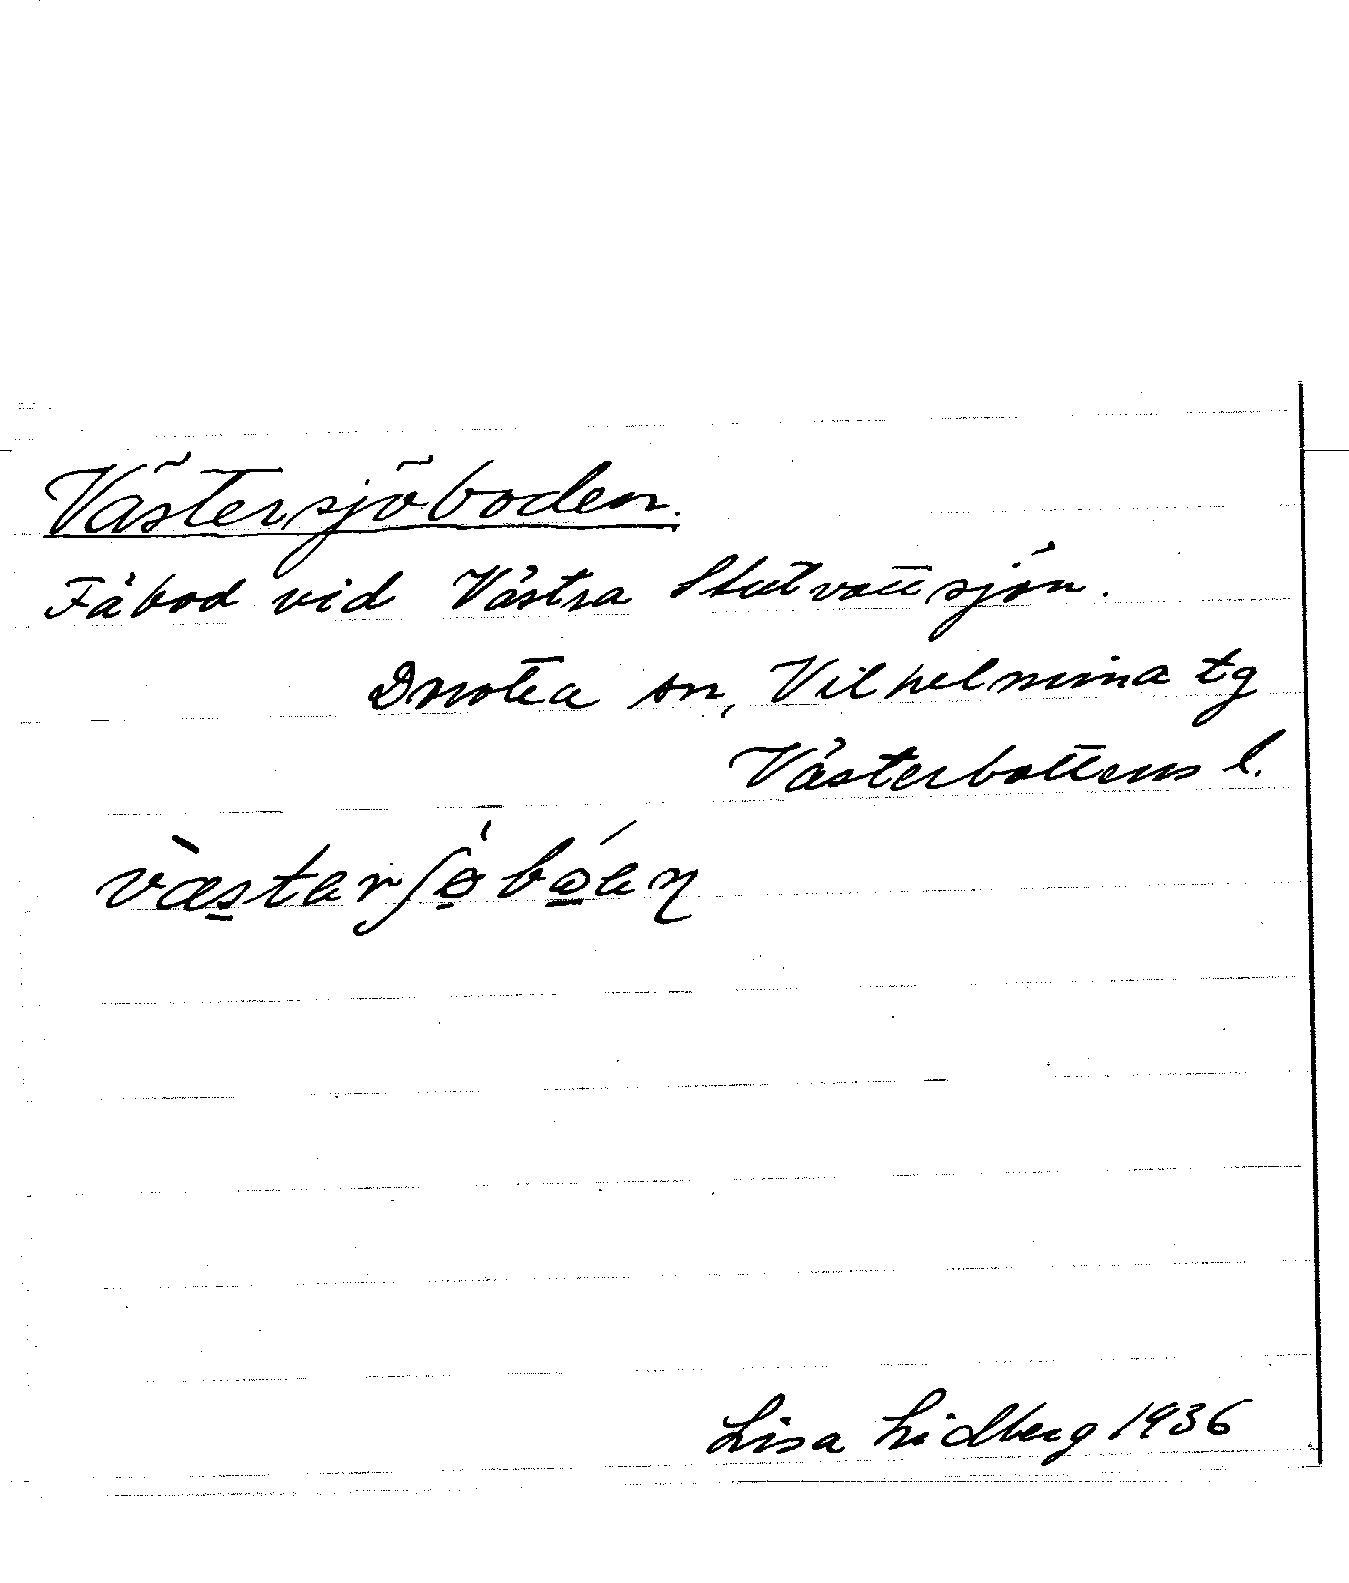 Västersjöboden.
Fäbod vid Västra Stutvattsjön.
Dorotea sn, Vilhelmina tg
Västerbottens l.
væsterʃöboen
Lisa Lidberg 1936